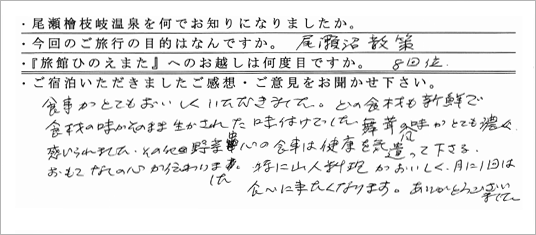 ・尾瀬檜枝岐温泉を何でお知りになりましたか。
・今回のご旅行の目的はなんですか。 尾瀬沼散策
・『旅館ひのえまた』へのお越しは何度目ですか。 8回位
・ご宿泊いただきましたご感想・ご意見をお聞かせ下さい。
食事がとてもおいしくいただきました。どの食材も新鮮で
食材の味がそのまま生かされた味付けでした。舞茸の味がとても濃く
感じられました。その他野菜中心の食事は健康を気遣って下さる
おもてなしの心が伝わりました。特に山人料理がおいしく、月に1回は
食べに来たくなります。ありがとうございました